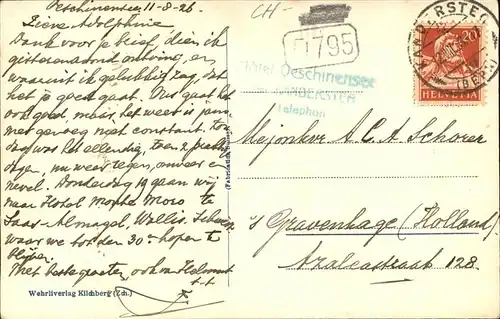 Oeschinensee 11-8-26.
Lieve Adolphine
Dank voor je brief, dien ik
gisterenavond ontving, en
waaruit ik gelukkig zag, dat
het je goed gaat. Ons gaat het
ook goed, maar het weer is jam-
mer genoeg niet constant. Van-
daag was het ellendig, toen 2 prachtige
dagen, nu weer regen, onweer en
nevel. Donderdag 19 gaan wij
naar Hotel Monte Moro te
Saas-Almagel, Wallis,
waar we tot den 30e hopen te
blijven.
Met beste groeten, ook van Helmut
t.t.
CH-
1795
Hotel Oeschinensee
KANDERSTEG
Telephon
KANDERSTEG
(BERN)
20
HELVETIA
Mejonkvr A.C.A. Schorer
's Gravenhage (Holland)
Azaleastraat 128.
Wehrliverlag Kilchberg (Zch.)